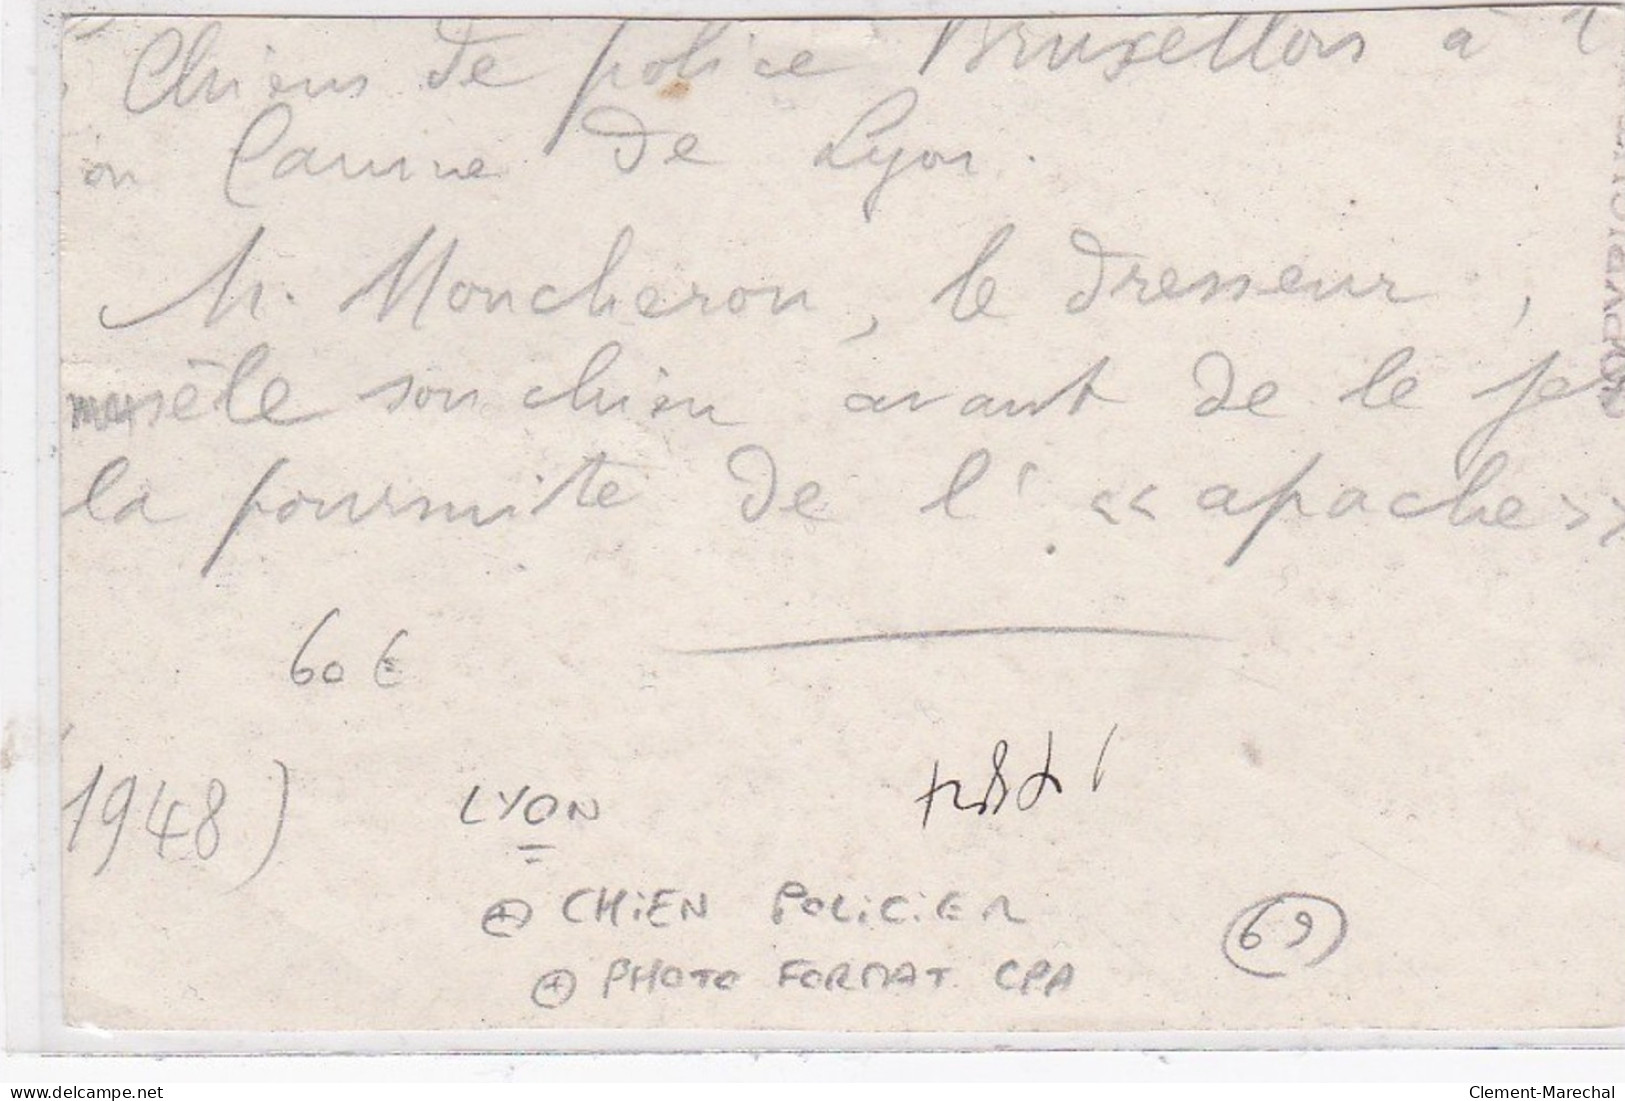 Chiens de police Bruxellois à l
on Canine de Lyon.
M. Moncheron, le dresseur,
musèle son chien avant de le je
la poursuite de l' « apache »
60 €
1948)
LYON
+ CHIEN POLICIER
69
+ PHOTO FORMAT CPA
www.delcampe.net
Clement-Marechal